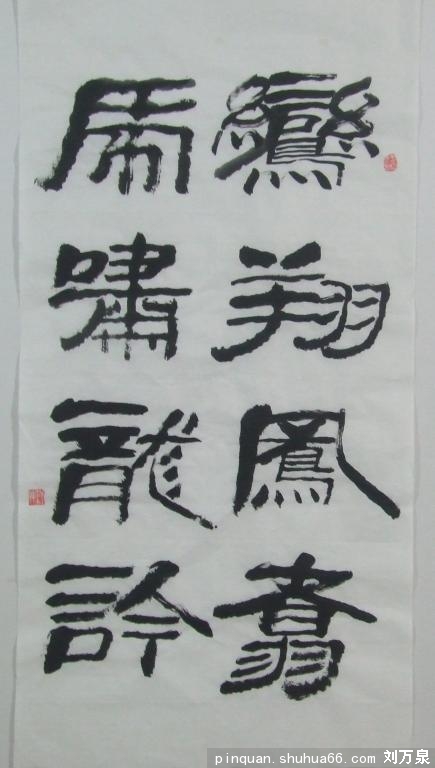 鸞翔鳳翥
虎嘯龍訡
pinquan.shuhua66.com 刘万泉